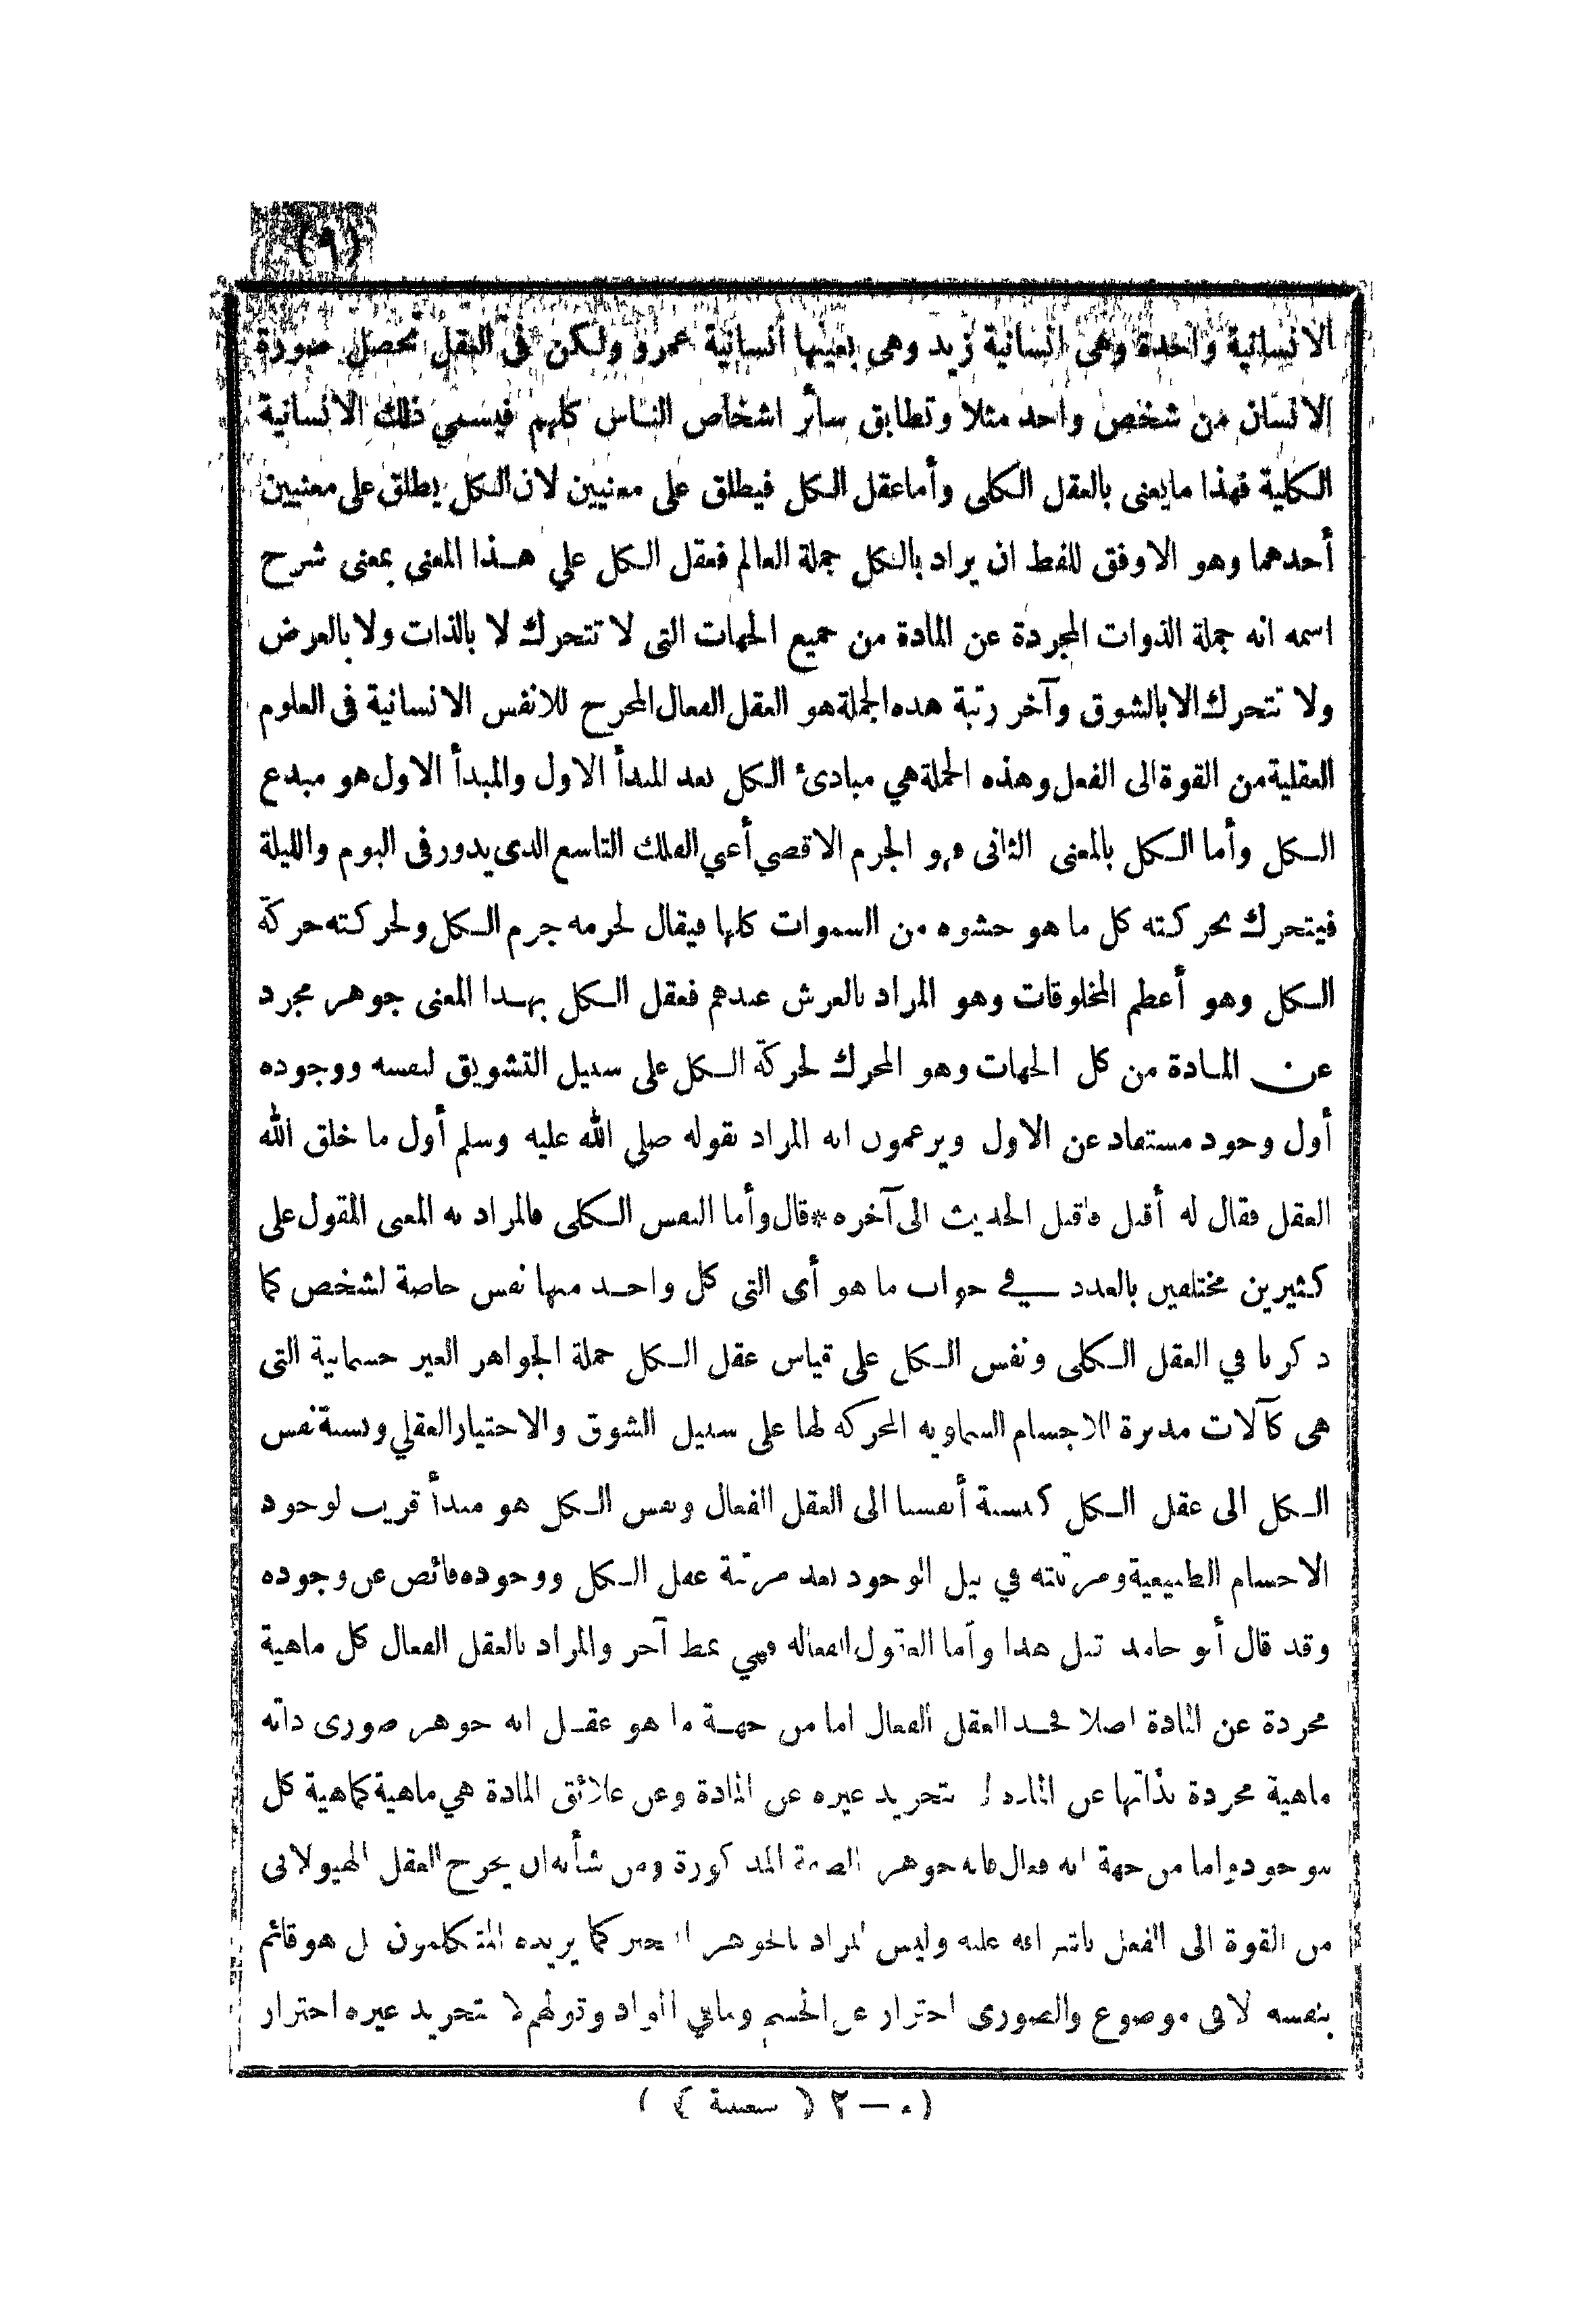 (٩)
الانسانية واحدة وهى انسانية زيد وهى بعينها انسانية عمرو ولكن فى العقل تحصل صورة
الانسان من شخص واحد مثلا وتطابق سائر اشخاص الناس كلهم فيسمي ذلك الانسانية
الكلية فهذا مايعنى بالعقل الكلى وأماعقل الكل فيطلق على معنيين لان الكل يطلق على معنيين
أحدهما وهو الاوفق للفظ ان يراد بالكل جملة العالم فعقل الكل علي هذا المعنى بمعنى شرح
اسمه انه جملة الذوات المجردة عن المادة من جميع الجهات التى لا تتحرك لا بالذات ولا بالعرض
ولا تتحرك الا بالشوق وآخر رتبة هذه الجملة هو العقل الفعال المخرج للانفس الانسانية فى العلوم
العقلية من القوة الى الفعل وهذه الجملة هي مبادئ الكل بعد المبدأ الاول والمبدأ الاول هو مبدع
الكل وأما الكل بالمعنى الثانى فهو الجرم الاقصي أعني الفلك التاسع الذى يدور فى اليوم والليلة
فيتحرك بحركته كل ما هو حشوه من السموات كلها فيقال لجرمه جرم الكل ولحركته حركة
الكل وهو أعظم المخلوقات وهو المراد بالعرش عندهم فعقل الكل بهذا المعنى جوهر مجرد
عن المادة من كل الجهات وهو المحرك لحركة الكل على سبيل التشويق لنفسه ووجوده
أول وجود مستفاد عن الاول ويزعمون انه المراد بقوله صلي الله عليه وسلم أول ما خلق الله
العقل فقال له أقبل فاقبل الحديث الى آخره * قال وأما النفس الكلى فالمراد به المعنى المقول على
كثيرين مختلفين بالعدد في جواب ما هو أى التى كل واحد منها نفس خاصة لشخص كما
ذكرنا في العقل الكلى ونفس الكل على قياس عقل الكل جملة الجواهر الغير جسمانية التى
هى كمالات مدبرة للاجسام السماوية المحركة لها على سبيل الشوق والاختيار العقلي ونسبة نفس
الكل الى عقل الكل كنسبة أنفسنا الى العقل الفعال ونفس الكل هو مبدأ قريب لوجود
الاجسام الطبيعية ومرتبته في نيل الوجود بعد مرتبة عقل الكل ووجوده فائض عن وجوده
وقد قال أبو حامد قبل هذا وأما العقول الفعاله فهي نمط آخر والمراد بالعقل الفعال كل ماهية
مجردة عن المادة اصلا فحد العقل الفعال اما من جهة ما هو عقل انه جوهر صورى ذاته
ماهية مجردة بذاتها عن الماده لا بتجريد غيره عن المادة وعن علائق المادة هي ماهية كماهية كل
موجود واما من جهة انه فعال فانه جوهر بالصفة المذكورة ومن شأنه ان يخرج العقل الهيولانى
من القوة الى الفعل باشراقه عليه وليس المراد بالجوهر المتحيز كما يريده المتكلمون بل هو قائم
بنفسه لا فى موضوع والصورى احتراز عن الجسم وما في المواد وقولهم لا بتجريد غيره احتراز
(م — ٢ ( سبعينية ) )